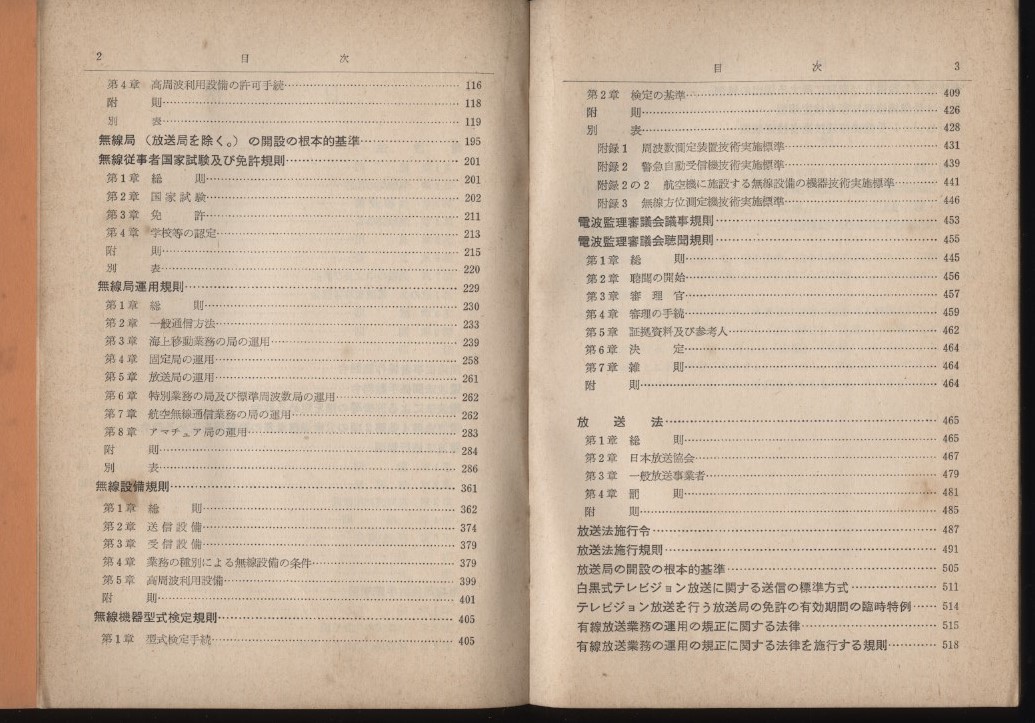 2 目 次
第4章 高周波利用設備の許可手続 116
附 則 118
別 表 119
無線局（放送局を除く。）の開設の根本的基準 195
無線従事者国家試験及び免許規則 201
第1章 総 則 201
第2章 国家試験 202
第3章 免 許 211
第4章 学校等の認定 213
附 則 215
別 表 220
無線局運用規則 229
第1章 総 則 230
第2章 一般通信方法 233
第3章 海上移動業務の局の運用 239
第4章 固定局の運用 258
第5章 放送局の運用 261
第6章 特別業務の局及び標準周波数局の運用 262
第7章 航空無線通信業務の局の運用 262
第8章 アマチュア局の運用 283
附 則 284
別 表 286
無線設備規則 361
第1章 総 則 362
第2章 送信設備 374
第3章 受信設備 379
第4章 業務の種別による無線設備の条件 379
第5章 高周波利用設備 399
附 則 401
無線機器型式検定規則 405
第1章 型式検定手続 405
目 次 3
第2章 検定の基準 409
附 則 426
別 表 428
附録1 周波数測定装置技術実施標準 431
附録2 警急自動受信機技術実施標準 439
附録2の2 航空機に施設する無線設備の機器技術実施標準 441
附録3 無線方位測定機技術実施標準 446
電波監理審議会議事規則 453
電波監理審議会聴聞規則 455
第1章 総 則 445
第2章 聴聞の開始 456
第3章 審理官 457
第4章 審理の手続 459
第5章 証拠資料及び参考人 462
第6章 決 定 464
第7章 雑 則 464
附 則 464
放 送 法 465
第1章 総 則 465
第2章 日本放送協会 467
第3章 一般放送事業者 479
第4章 罰 則 481
附 則 485
放送法施行令 487
放送法施行規則 491
放送局の開設の根本的基準 505
白黒式テレビジョン放送に関する送信の標準方式 511
テレビジョン放送を行う放送局の免許の有効期間の臨時特例 514
有線放送業務の運用の規正に関する法律 515
有線放送業務の運用の規正に関する法律を施行する規則 518